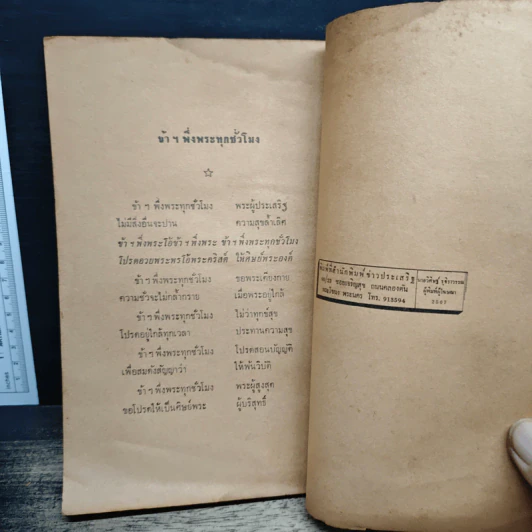 ข้า ฯ พึ่งพระทุกชั่วโมง
ข้า ฯ พึ่งพระทุกชั่วโมง พระผู้ประเสริฐ
ไม่มีสิ่งอื่นจะปาน ความสุขล้ำเลิศ
ข้า ฯ พึ่งพระโอ้ข้า ฯ พึ่งพระ ข้า ฯ พึ่งพระทุกชั่วโมง
โปรดอวยพระพรโอ้พระคริสต์ ให้ศิษย์พระองค์
ข้า ฯ พึ่งพระทุกชั่วโมง ขอพระเคียงกาย
ความชั่วจะไม่กล้ำกราย เมื่อพระอยู่ใกล้
ข้า ฯ พึ่งพระทุกชั่วโมง ไม่ว่าทุกข์สุข
โปรดอยู่ใกล้ทุกเวลา ประทานความสุข
ข้า ฯ พึ่งพระทุกชั่วโมง โปรดสอนบัญญัติ
เพื่อสมดังสัญญาว่า ให้พ้นวิบัติ
ข้า ฯ พึ่งพระทุกชั่วโมง พระผู้สูงสุด
ขอโปรดให้เป็นศิษย์พระ ผู้บริสุทธิ์
พิมพ์ที่สำนักพิมพ์ข่าวประเสริฐ
ซอยเจริญสุข ถนนคลองตัน
พระนคร โทร. 913594
ผู้พิมพ์ผู้โฆษณา